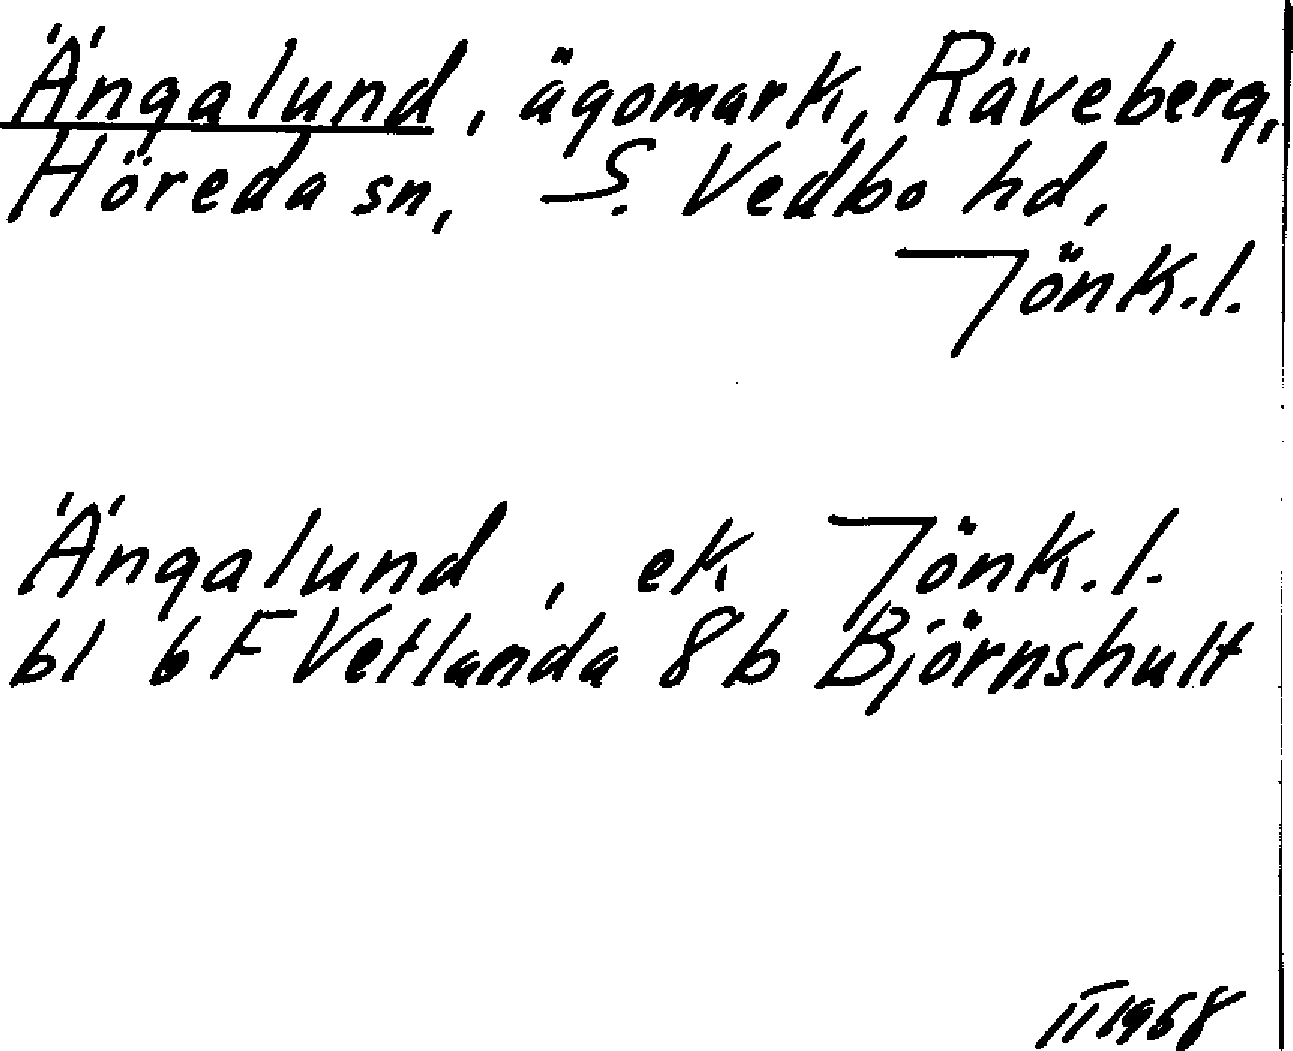 Ängalund, ägomark, Räveberg,
Höreda sn, S. Vedbo hd,
Jönk.l.
Ängalund, ek Jönk.l.
bl 6 F Vetlanda 8b Björnshult
II 1958